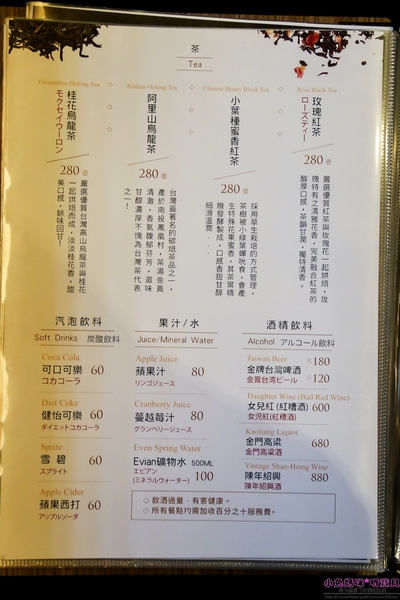 茶
Tea
Osmanthus Oolong Tea
桂花烏龍茶
モクセイウーロン
280 壺
嚴選優質台灣高山烏龍茶與桂花
一起烘焙而成，淡淡桂花香，甜
美口感，餘味回甘！
Alishan Oolong Tea
阿里山烏龍茶
280 壺
台灣最著名的碳焙茶品之一，
產於南投鳳凰村，茶湯金黃
清澈，香氣馥郁芬芳，滋味
甘醇濃厚不愧為台灣茶代表
之一！
Chinese Honey Black Tea
小葉種蜜香紅茶
280 壺
採用草生栽培的方式管理，
茶樹被小綠葉蟬吮食，會產
生特殊花果蜜香，其茶葉精
緻發酵製成，口感香甜甘醇
細滑溫潤．．
Rose Black Tea
玫瑰紅茶
ローズティー
280 壺
嚴選優質紅茶與玫瑰花一起烘焙，玫
瑰特有之清雅花香，完美融合紅茶的
醇厚口感，茶韻甘潤，獨特清香。
汽泡飲料
Soft Drinks 炭酸飲料
Coca Cola
可口可樂 60
コカコーラ
Diet Coke
健怡可樂 60
ダイエットコカコーラ
Sprite
雪碧 60
スプライト
Apple Cider
蘋果西打 60
アップルソーダ
果汁/水
Juice/Mineral Water
Apple Juice
蘋果汁 80
リンゴジュース
Cranberry Juice
蔓越莓汁 80
グランベリージュース
Even Spring Water
Evian礦物水 500ML
エビアン
(ミネラルウォーター) 100
酒精飲料
Alcohol アルコール飲料
Taiwan Beer
金牌台灣啤酒 大180
金賞台湾ビール 小120
Daughter Wine (Bad Red Wine)
女兒紅(紅糟酒) 600
女児紅(紅槽酒)
Kaoliang Liquor
金門高粱 680
金門高梁酒
Vintage Shao-Hsing Wine
陳年紹興 880
陳年紹興酒
◇飲酒過量，有害健康。
◇所有餐點均需加收百分之十服務費。
小兔媽咪*呀寶貝